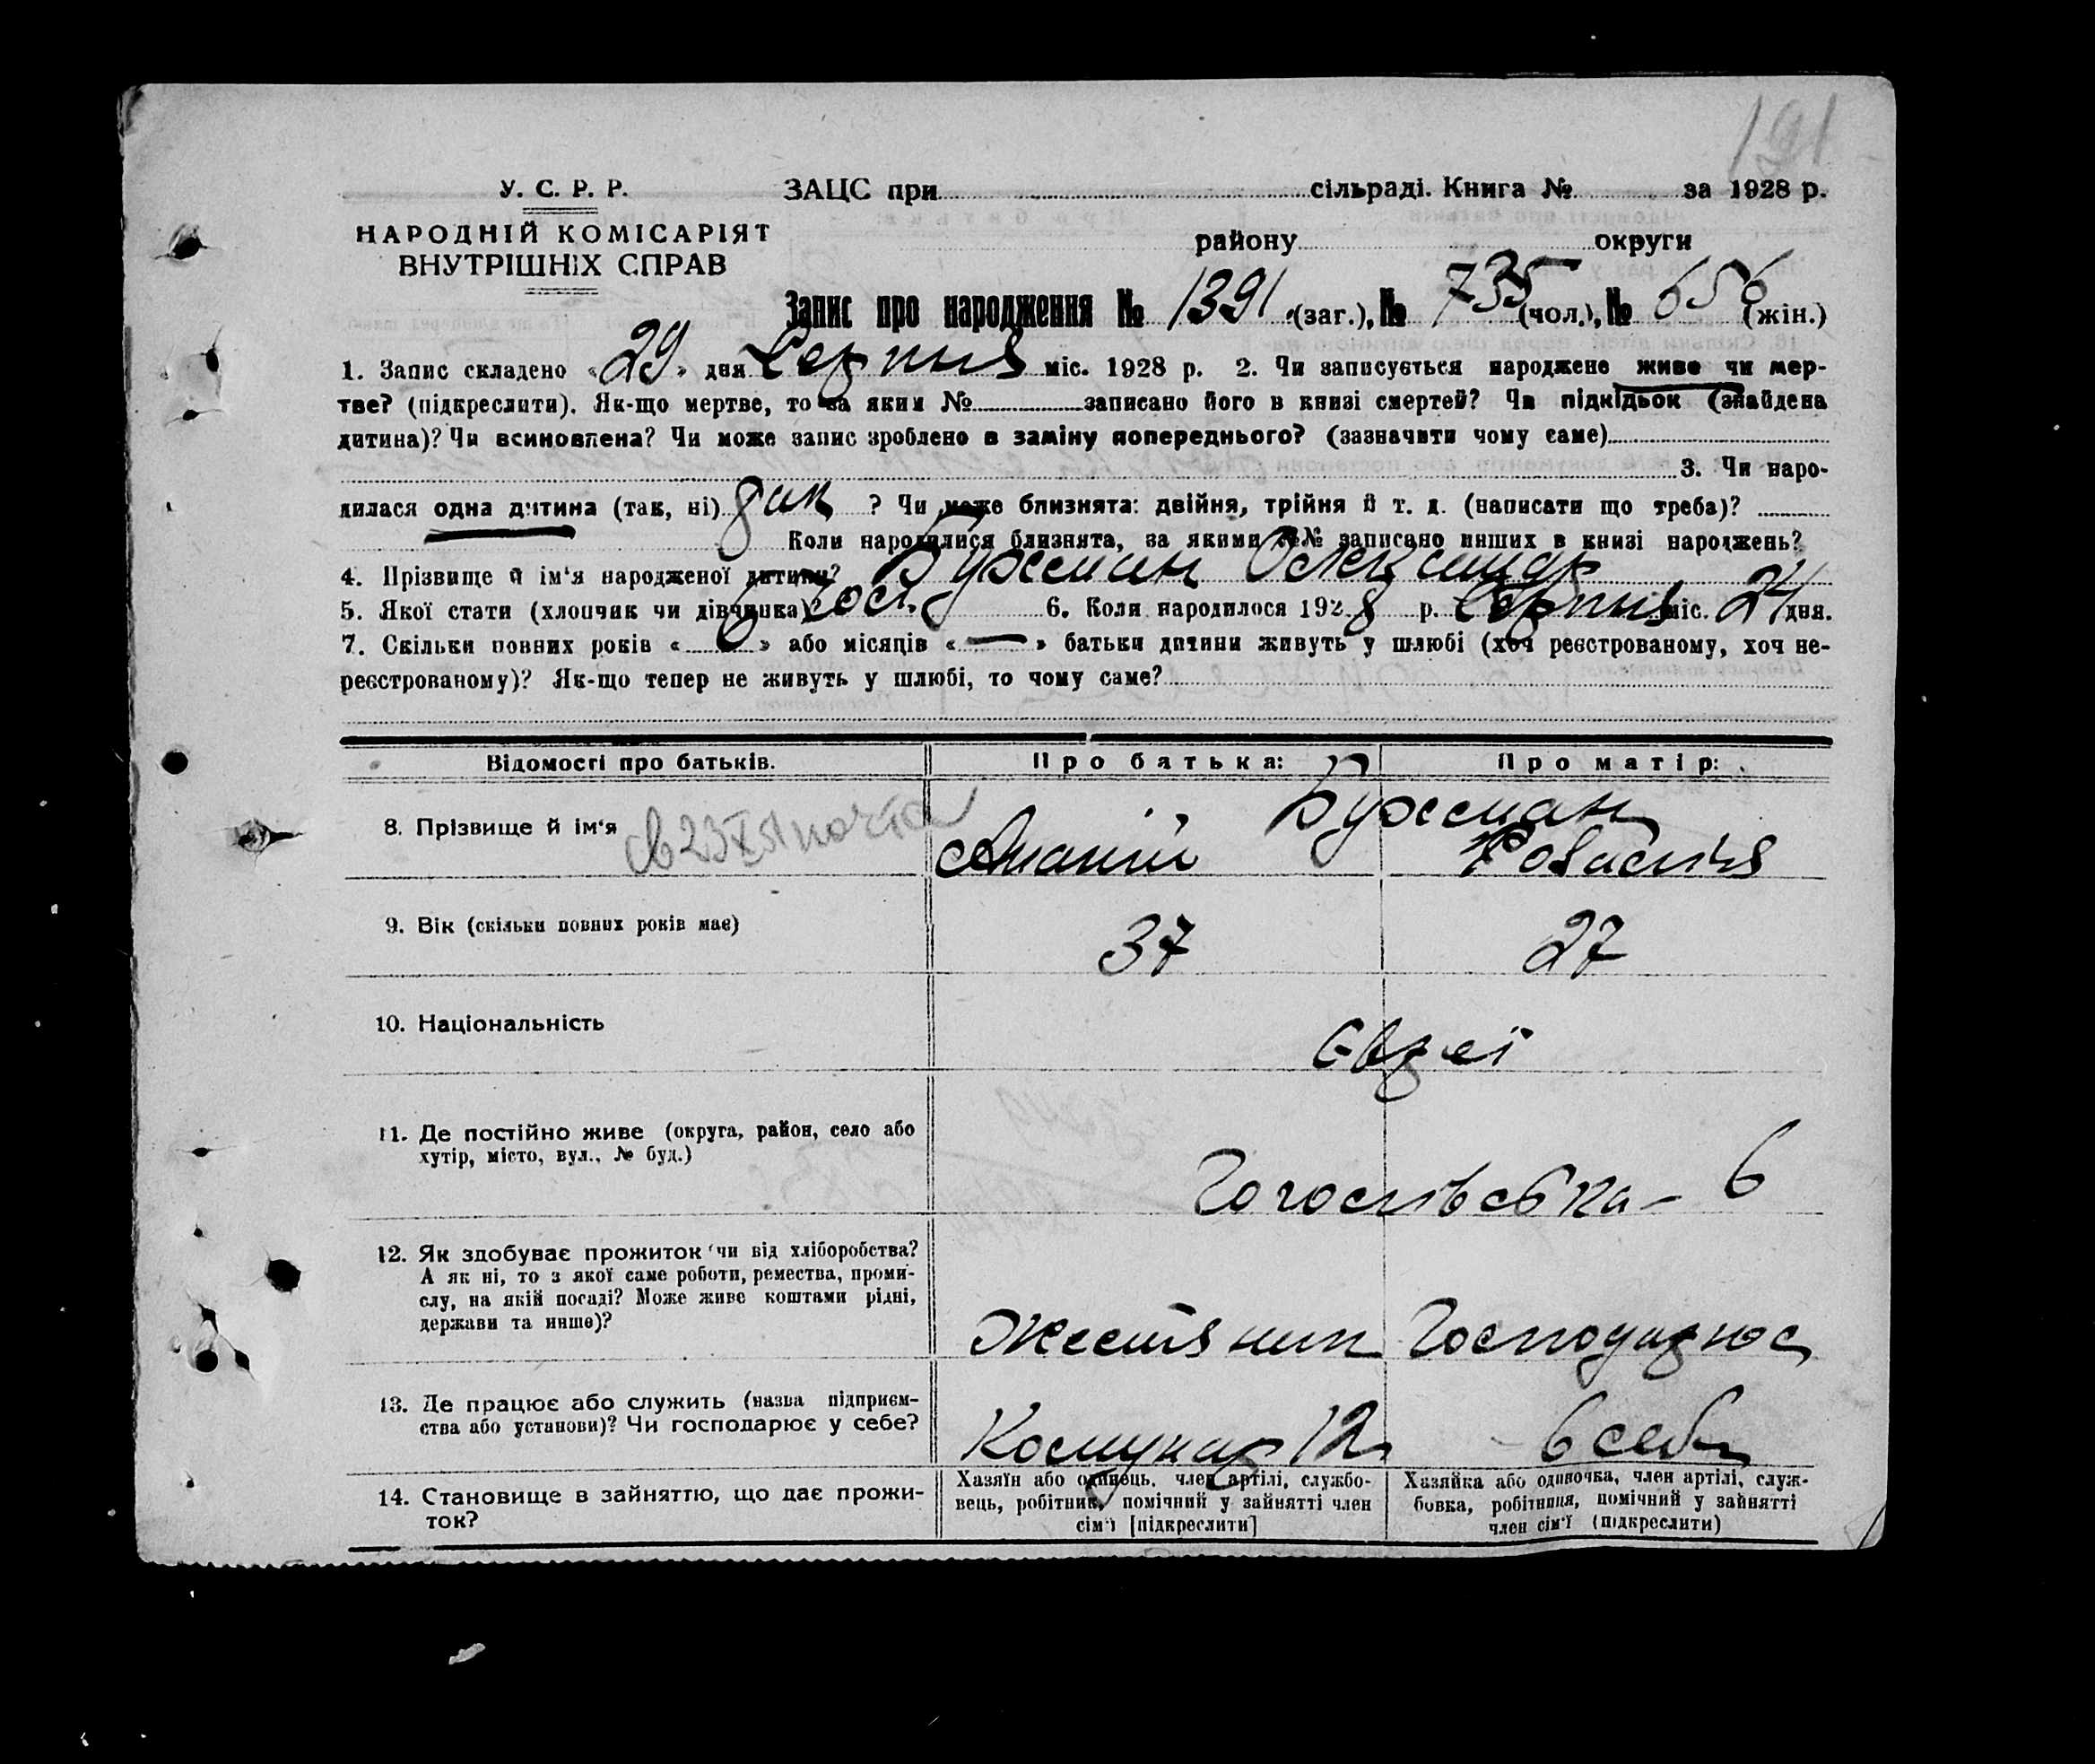 191
У. С. Р. Р.
НАРОДНІЙ КОМІСАРІЯТ
ВНУТРІШНІХ СПРАВ
ЗАЦС при сільраді. Книга № за 1928 р.
району округи
Запис про народження № 1391 (заг.), № 735 (чол.), № 656 (жін.)
1. Запис складено «29» дня Серпня міс. 1928 р. 2. Чи записується народжене живе чи мер-
тве? (підкреслити). Як-що мертве, то за яким № записано його в книзі смертей? Чи підкідьок (знайдена
дитина)? Чи всиновлена? Чи може запис зроблено в заміну попереднього? (зазначити чому саме)
3. Чи наро-
дилася одна дитина (так, ні) так ? Чи може близнята: двійня, трійня й т. д. (написати що треба)?
Коли народилися близнята, за якими №№ записано инших в книзі народжень?
4. Прізвище й ім'я народженої дитини? Бухсман Олександр
5. Якої стати (хлопчик чи дівчинка) 6. Коли народилося 1928 р. Серпня міс. 24 дня.
7. Скільки повних років « 6 » або місяців « — » батьки дитини живуть у шлюбі (хоч реєстрованому, хоч не-
реєстрованому)? Як-що тепер не живуть у шлюбі, то чому саме?
Відомості про батьків. Про батька: Про матір:
8. Прізвище й ім'я Бухсман
Ананій
9. Вік (скільки повних років має) 37 27
10. Національність Євреї
11. Де постійно живе (округа, район, село або
хутір, місто, вул., № буд.)
Гоголівська – 6
12. Як здобуває прожиток чи від хліборобства?
А як ні, то з якої саме роботи, ремества, проми-
слу, на якій посаді? Може живе коштами рідні,
держави та инше)?
Жестяник Господарює
13. Де працює або служить (назва підприєм-
ства або установи)? Чи господарює у себе?
Комунар 12 в себе
14. Становище в зайняттю, що дає прожи-
ток?
Хазяїн або одинець, член артілі, службо-
вець, робітник, помічний у зайнятті член
сім'ї [підкреслити]
Хазяйка або одиночка, член артілі, служ-
бовка, робітниця, помічний у зайнятті
член сім'ї (підкреслити)